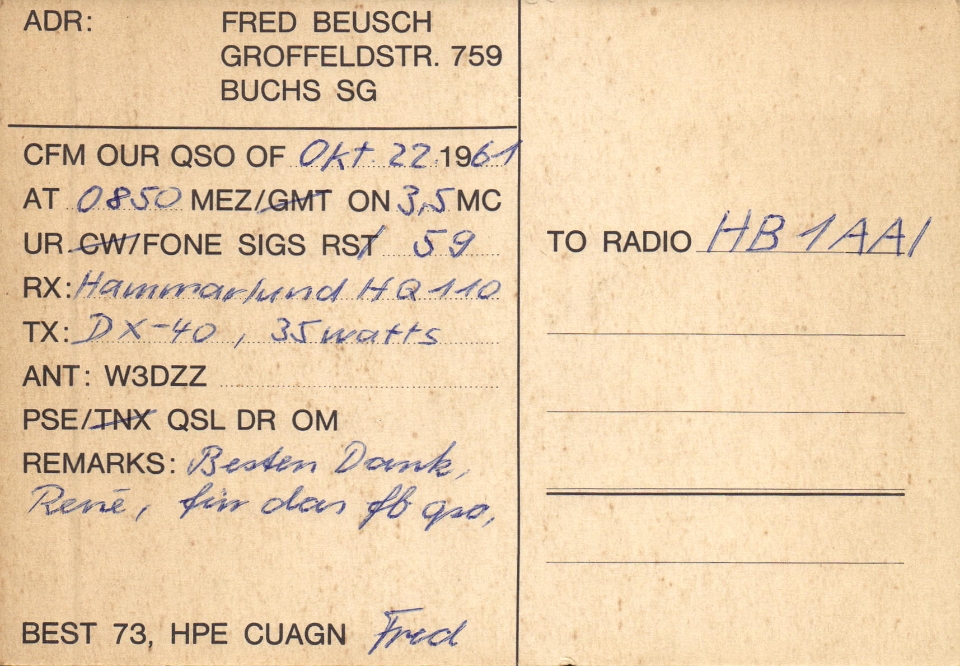 ADR: FRED BEUSCH
GROFFELDSTR. 759
BUCHS SG
CFM OUR QSO OF Okt. 22. 1961
AT 0850 MEZ/GMT ON 3,5 MC
UR CW/FONE SIGS RST 59
RX: Hammarlund HQ 110
TX: DX-40, 35 watts
ANT: W3DZZ
PSE/TNX QSL DR OM
REMARKS: Besten Dank,
René, für das fb qso,
BEST 73, HPE CUAGN Fred
TO RADIO HB1AAI